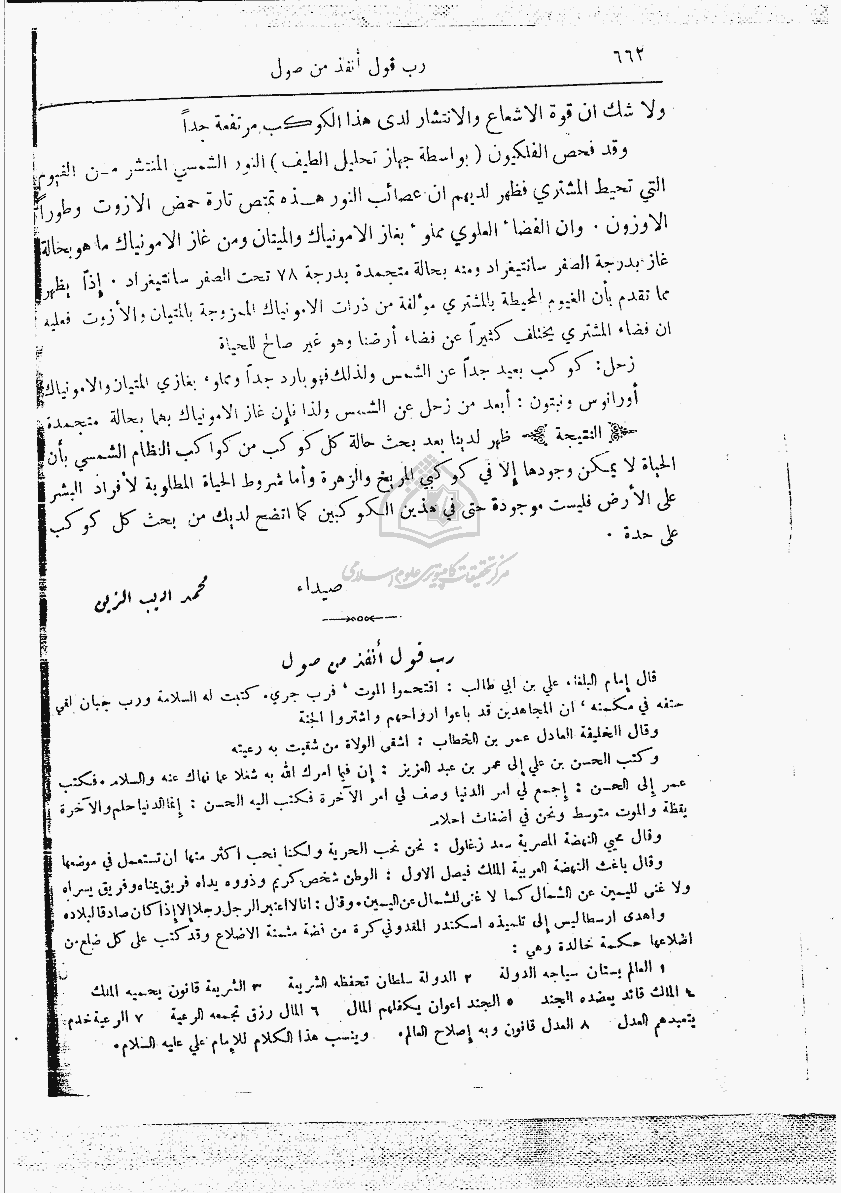 ٦٦٢
رب قول أنفذ من صول
ولا شك ان قوة الاشعاع والانتشار لدى هذا الكوكب مرتفعة جداً
وقد فحص الفلكيون ( بواسطة جهاز تحليل الطيف ) النور الشمسي المنتشر من الغيوم
التي تحيط المشتري فظهر لديهم ان عصائب النور هذه تمتص تارة حمض الازوت وطوراً
الاوزون . وان الفضاء العلوي مملوء بغاز الامونياك والميتان ومن غاز الامونياك ما هو بحالة
غاز بدرجة الصفر سانتيغراد ومنه بحالة متجمدة بدرجة ٧٨ تحت الصفر سانتيغراد . إذاً يظهر
مما تقدم بأن الغيوم المحيطة بالمشتري مؤلفة من ذرات الامونياك الممزوجة بالمتيان والأزوت فعليه
ان فضاء المشتري يختلف كثيراً عن فضاء أرضنا وهو غير صالح للحياة
زحل : كوكب بعيد جداً عن الشمس ولذلك فهو بارد جداً ومملوء بغازي المتيان والامونياك
أورانوس ونبتون : أبعد من زحل عن الشمس ولذا فإن غاز الامونياك بهما بحالة متجمدة
النتيجة ظهر لدينا بعد بحث حالة كل كوكب من كواكب النظام الشمسي بأن
الحياة لا يمكن وجودها إلا في كوكبي المريخ والزهرة وأما شروط الحياة المطلوبة لأفراد البشر
على الأرض فليست موجودة حتى في هذين الكوكبين كما اتضح لديك من بحث كل كوكب
على حدة .
مركز تحقيقات كامپيوترى علوم اسلامى
صيداء محمد اديب الزين
رب قول أنفذ من صول
قال إمام البلغاء علي بن ابي طالب : اقتحموا الموت ، فرب جريء كتبت له السلامة ورب جبان لقي
حتفه في مكمنه ، ان المجاهدين قد باعوا ارواحهم واشتروا الجنة
وقال الخليفة العادل عمر بن الخطاب : اشقى الولاة من شقيت به رعيته
وكتب الحسن بن علي إلى عمر بن عبد العزيز : إن فيما امرك الله به شغلا عما نهاك عنه والسلام . فكتب
عمر إلى الحسن : إجمع لي امر الدنيا وصف لي امر الآخرة فكتب اليه الحسن : إنما الدنيا حلم والآخرة
يقظة والموت متوسط ونحن في اضغاث احلام
وقال محيي النهضة المصرية سعد زغلول : نحن نحب الحرية ولكنا نحب اكثر منها ان تستعمل في موضعها
وقال باعث النهضة العربية الملك فيصل الاول : الوطن شخص كريم وذووه يداه فريق يمناه وفريق يسراه
ولا غنى لليمين عن الشمال كما لا غنى للشمال عن اليمين . وقال : انا لا اعتبر الرجل رجلا إلا إذا كان صادقا لبلاده
واهدى ارسطاليس إلى تلميذه اسكندر المقدوني كرة من فضة مثمنة الاضلاع وقد كتب على كل ضلع من
اضلاعها حكمة خالدة وهي :
١ العالم بستان سياجه الدولة ٢ الدولة سلطان تحفظه الشريعة ٣ الشريعة قانون يحميه الملك
٤ المالك قائد يعضده الجند ٥ الجند اعوان يكفلهم المال ٦ المال رزق تجمعه الرعية ٧ الرعية خدم
يتعبدهم العدل ٨ العدل قانون وبه إصلاح العالم . وينسب هذا الكلام للإمام علي عليه السلام .